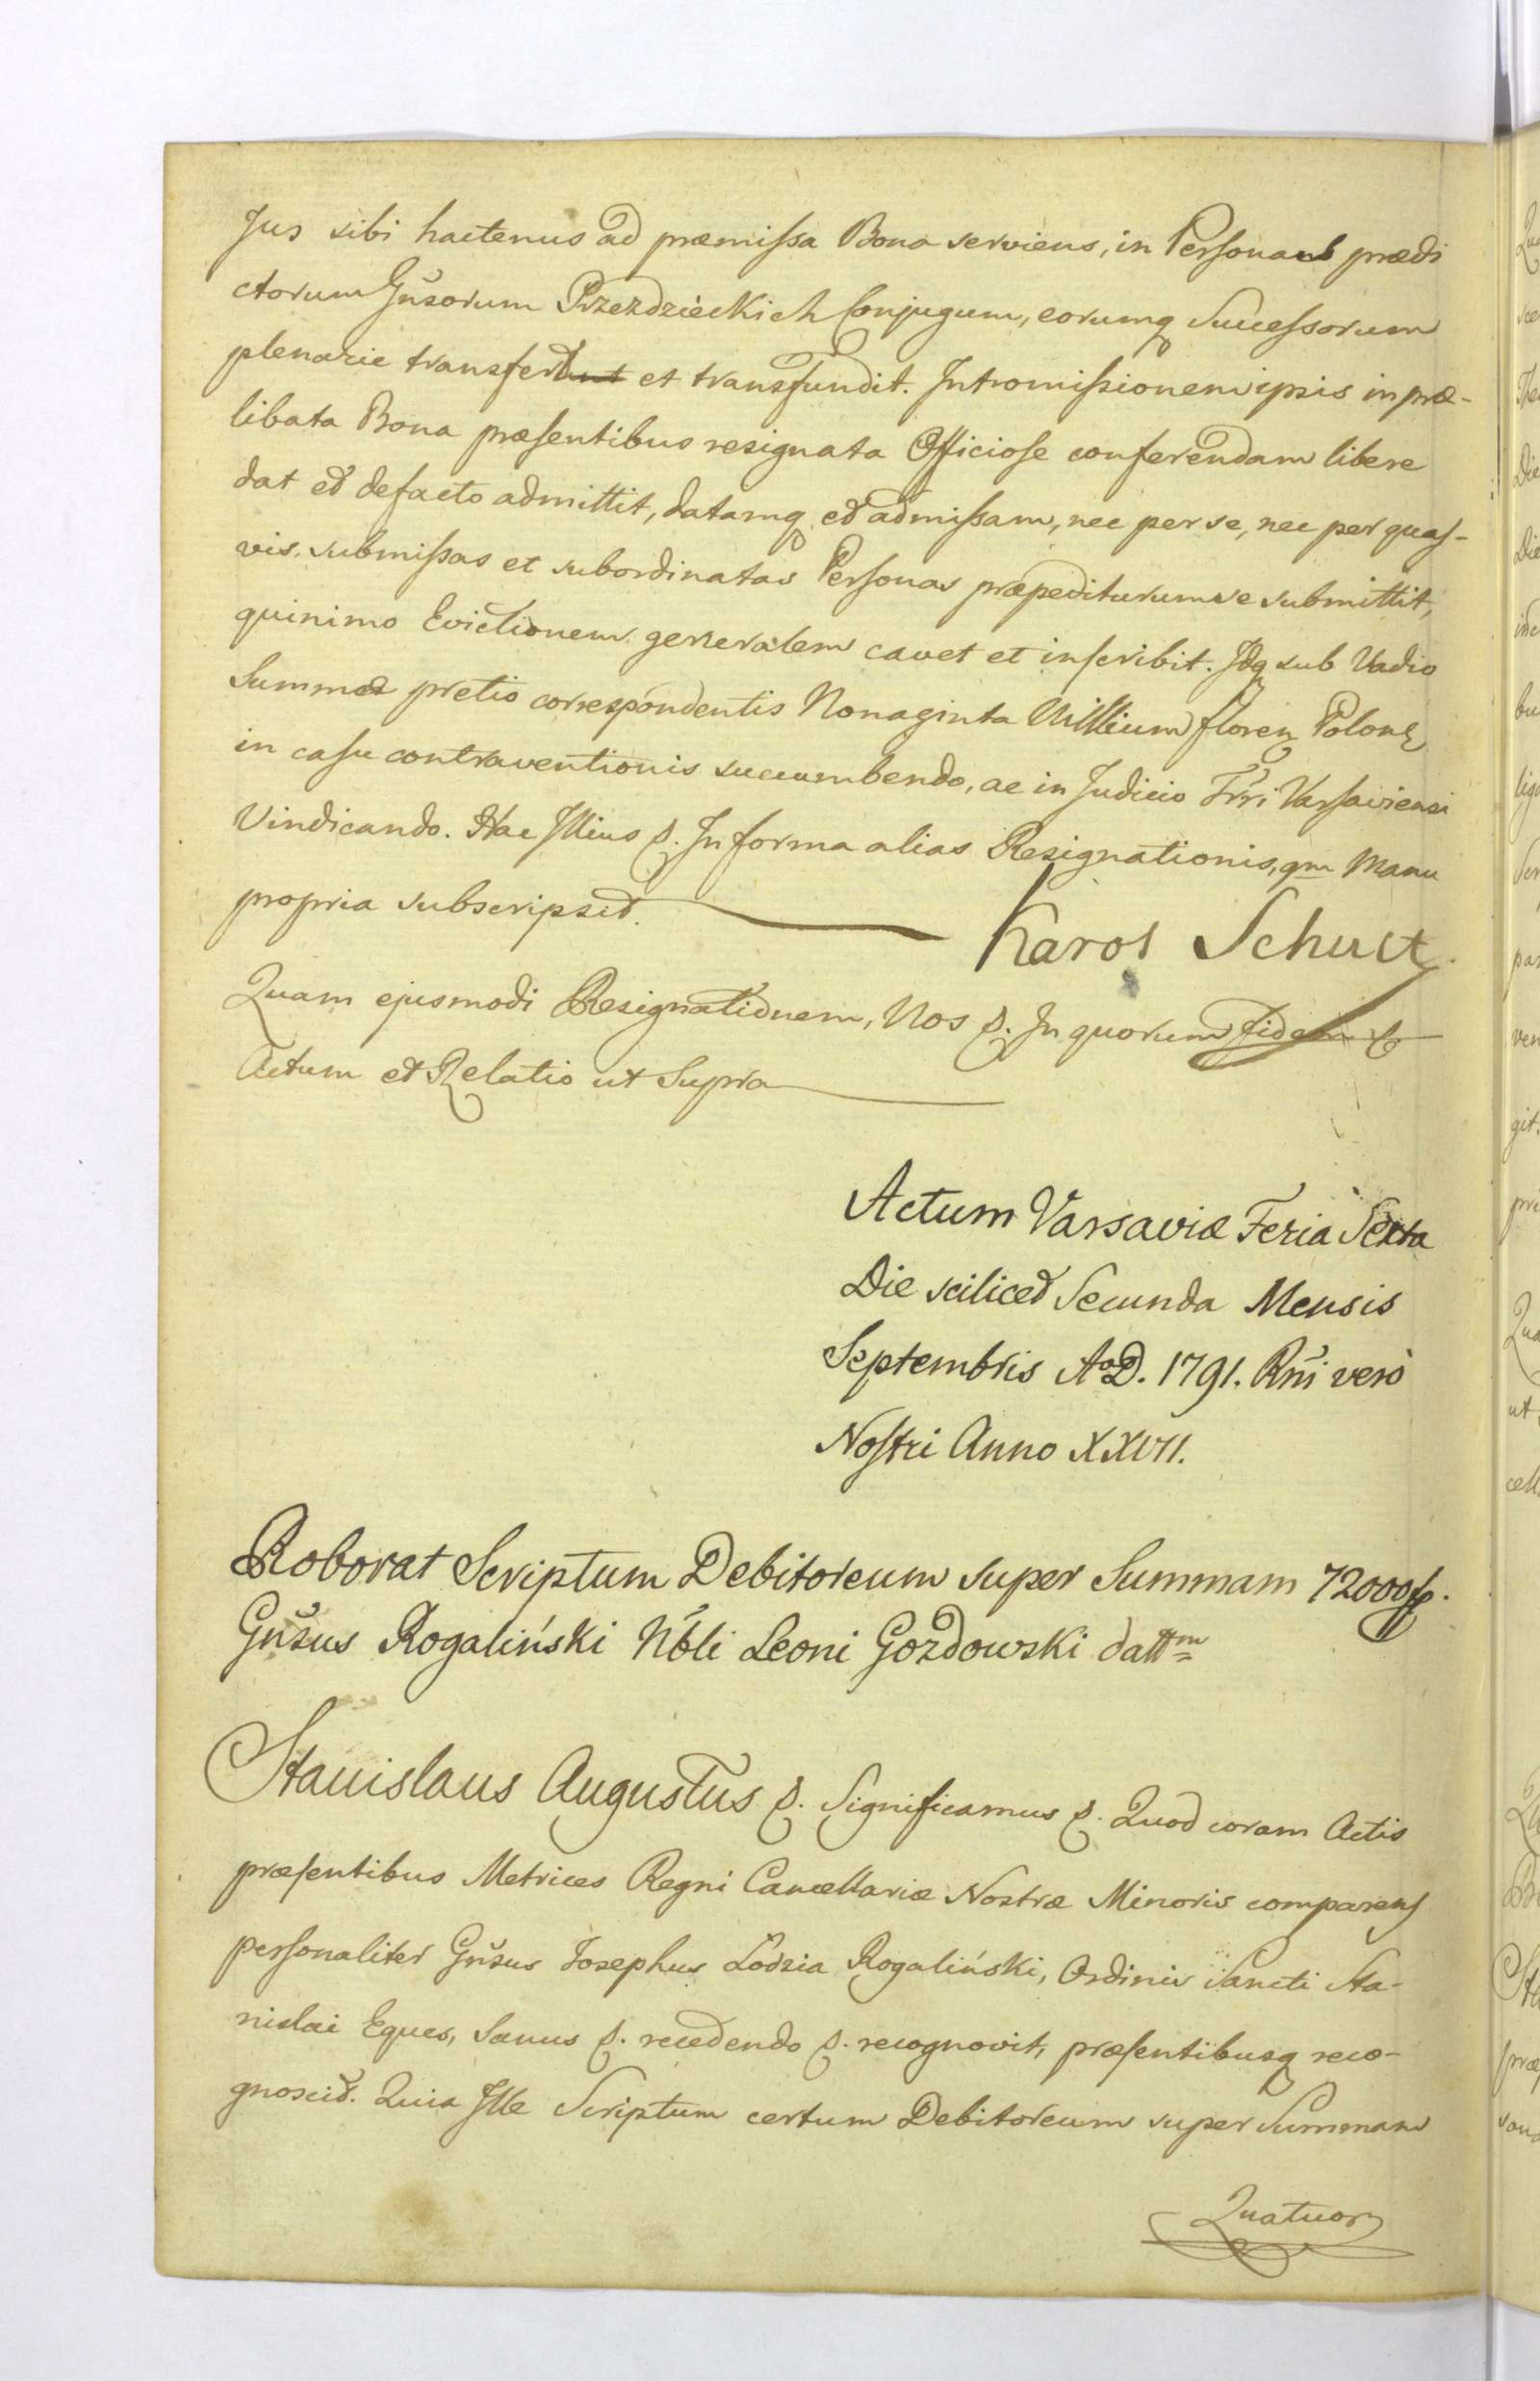 Jus sibi hactenus ad præmissa Bona serviens, in Personas prædi
ctorum Gnsorum Przezdzieckich Conjugum, eorumq Successorum
plenarie transfert et transfundit. Intromissionem ipsis in præ-
libata Bona præsentibus resignata Officiose conferendam libere
dat et defacto admittit, datamq et admissam, nec per se, nec per quas-
vis submissas et subordinatas Personas præpediturum se submittit,
quinimo Evictionem generalem cavet et inscribit. Idq sub Vadio
Summæ pretio correspondentis Nonaginta Millium floren Polon
in casu contraventionis succumbendo, ac in Judicio Trri Varsaviensi
Vindicando. Hac Illius &. In forma alias Resignationis, qm Manu
propria subscripsit.
Karol Schultz.
Quam ejusmodi Resignationem, Nos &. In quorum fidem &
Actum et Relatio ut Supra
Actum Varsaviæ Feria Sexta
Die scilicet Secunda Mensis
Septembris AoD. 1791. Rni verò
Nostri Anno XXVII.
Roborat Scriptum Debitoreum super Summam 72000 fp.
Gnsus Rogaliński Nbli Leoni Gozdowski dattm
Stanislaus Augustus &. Significamus &. Quod coram Actis
præsentibus Metrices Regni Cancellariæ Nostræ Minoris comparens
personaliter Gnsus Josephus Łodzia Rogaliński, Ordinis Sancti Sta-
nislai Eques, Sanus &. recedendo &. recognovit, præsentibusq reco-
gnoscit. Quia Ille Scriptum certum Debitoreum super Summam
Quatuor